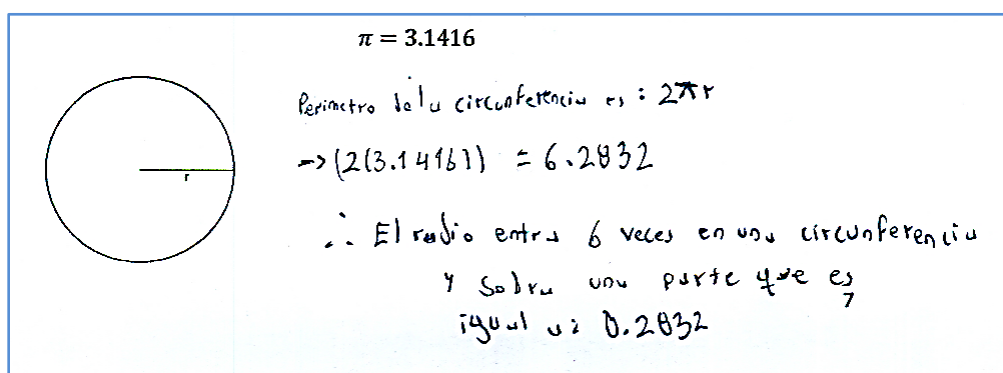 π = 3.1416
Perimetro de la circunferencia es : 2πr
→ (2(3.1416)) = 6.2832
∴ El radio entra 6 veces en una circunferencia
y sobra una parte que es
igual a: 0.2832
r